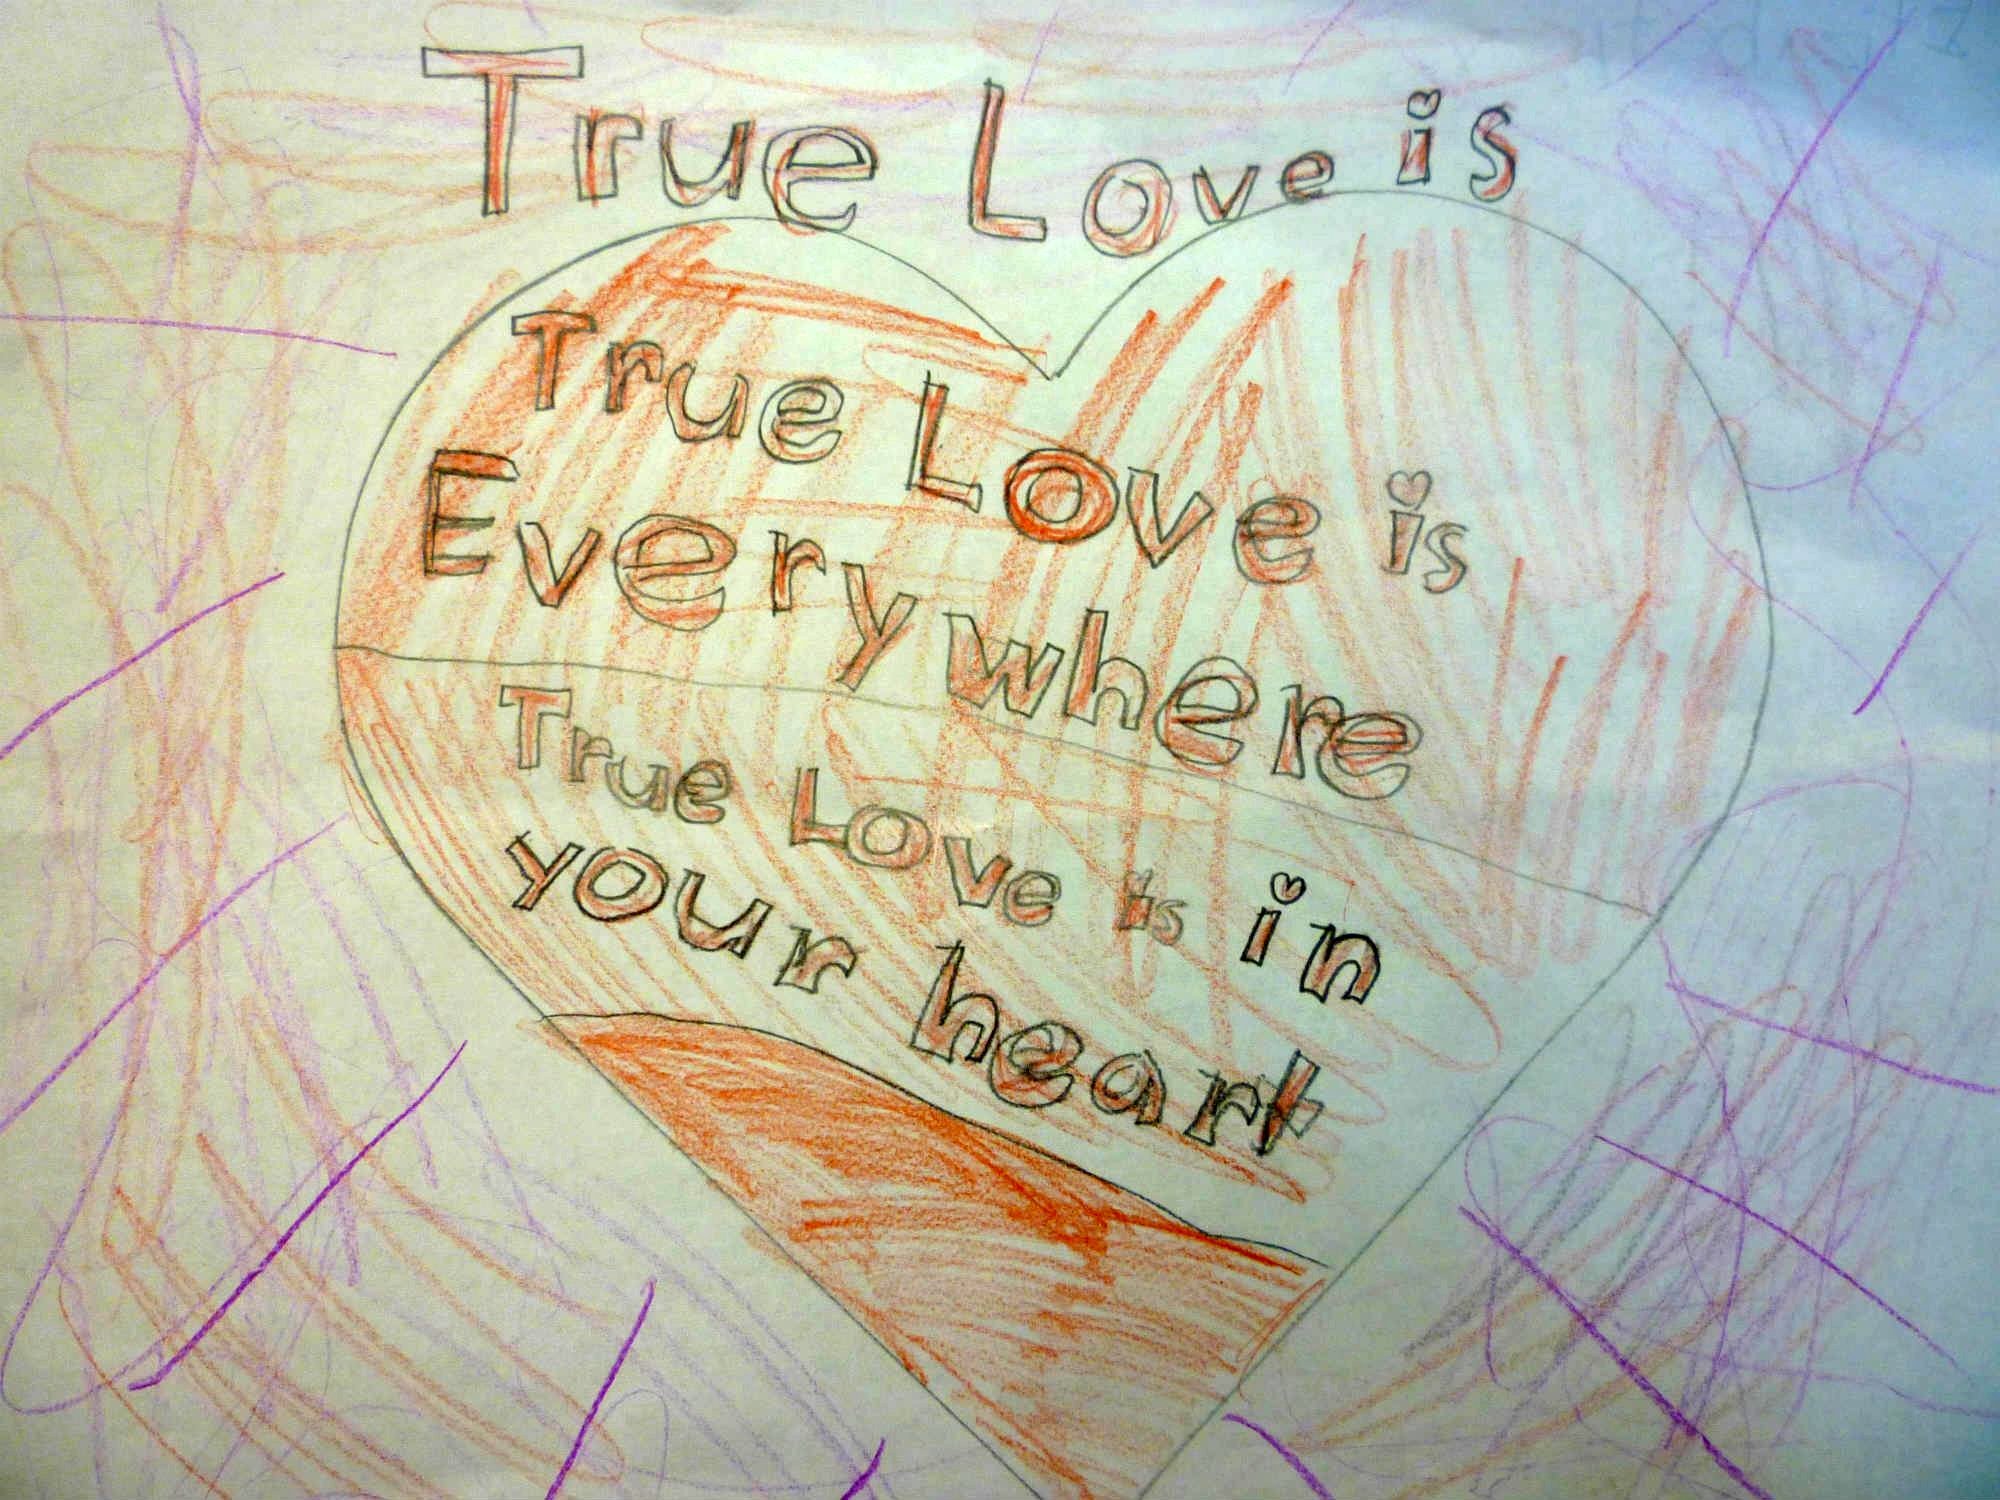 True Love is
True Love is
Everywhere
True Love is in
your heart